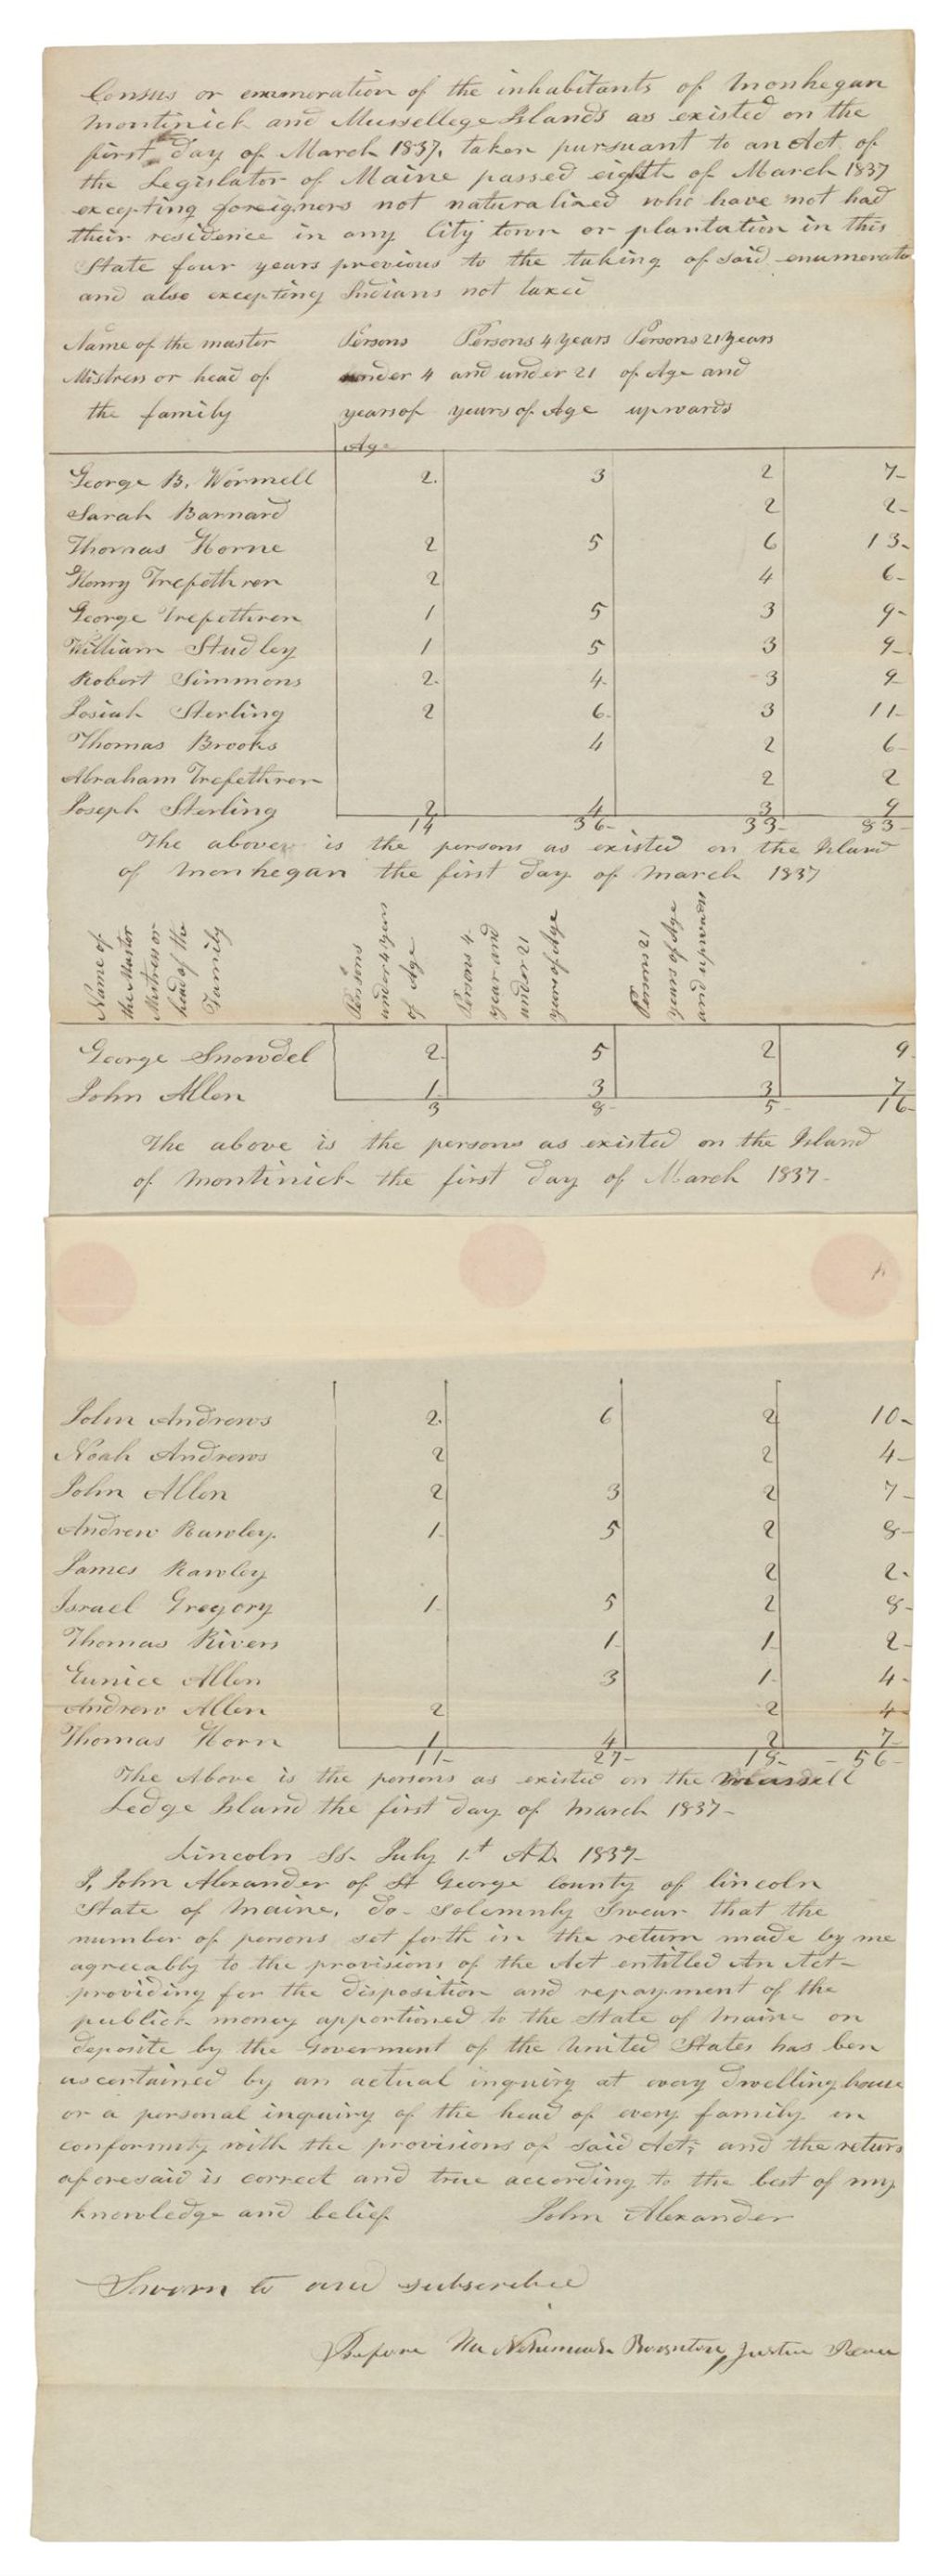 Census or enumeration of the inhabitants of Monhegan
Montinick and Mussellege Islands as existed on the
first day of March 1837, taken pursuant to an Act of
the Legislator of Maine passed eighth of March 1837
excepting foreigners not naturalized who have not had
their residence in any City town or plantation in this
State four years previous to the taking of said enumeratio
and also excepting Indians not taxed
Name of the master Persons Persons 4 years Persons 21 years
Mistress or head of under 4 and under 21 of Age and
the family years of years of Age upwards
Age
George B. Wormell 2. 3 2 7-
Sarah Barnard 2 2-
Thomas Horne 2 5 6 13-
Henry Trepethren 2 4 6-
George Trepethren 1 5 3 9-
William Studley 1 5 3 9-
Robert Simmons 2. 4. 3 9
Josiah Sterling 2 6. 3 11-
Thomas Brooks 4 2 6-
Abraham Trefethren 2 2
Joseph Sterling 2 4 3 9
14 36- 33- 83-
The above is the persons as existed on the Island
of Monhegan the first day of March 1837
Name of
the Master
Mistress or
head of the
Family
Persons
under 4 years
of Age
Persons 4
year and
under 21
years of Age
Persons 21
years of Age
and upwards
George Snowdel 2. 5 2 9
John Allen 1. 3 3 7-
3 8- 5- 16-
The above is the persons as existed on the Island
of Montinick the first day of March 1837-
John Andrews 2. 6 2 10-
Noah Andrews 2 2 4-
John Allen 2 3 2 7-
Andrew Rawley. 1. 5 2 8-
James Rawley 2 2.
Israel Gregory 1. 5 2 8-
Thomas Rivers 1. 1. 2-
Eunice Allen 3 1. 4-
Andrew Allen 2 2 4
Thomas Horn 1 4 2 7-
11- 27- 18- - 56-
The Above is the persons as existed on the Mussell
Ledge Island the first day of March 1837-
Lincoln SS. July 1st A.D. 1837-
I, John Alexander of St George County of lincoln
State of Maine, do- solemnly Swear that the
number of persons set forth in the return made by me
agreeably to the provisions of the Act entitled An Act-
providing for the disposition and repayment of the
publick money apportioned to the State of Maine on
deposite by the Goverment of the United States has ben
ascertained by an actual inquiry at every dwelling house
or a personal inquiry of the head of every family in
conformity with the provisions of said Act; and the return
aforesaid is correct and true according to the best of my
knowledge and belief. John Alexander
Sworn to and subscribed
Before Me Nehemiah Boynton, Justice Peace